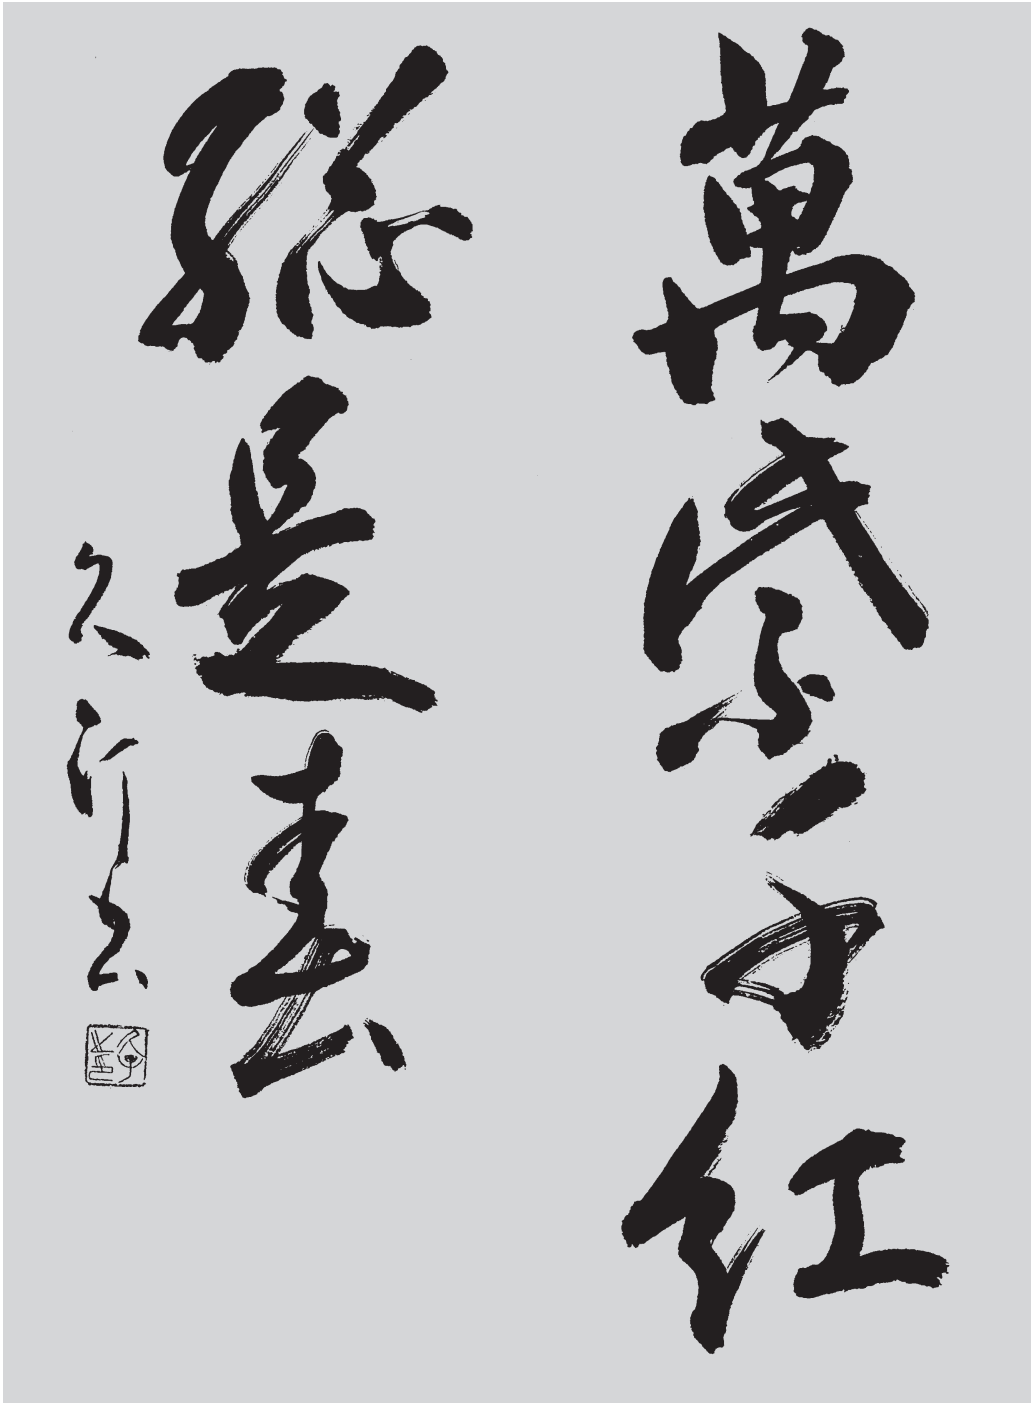 萬紫千紅
総是春
久行书